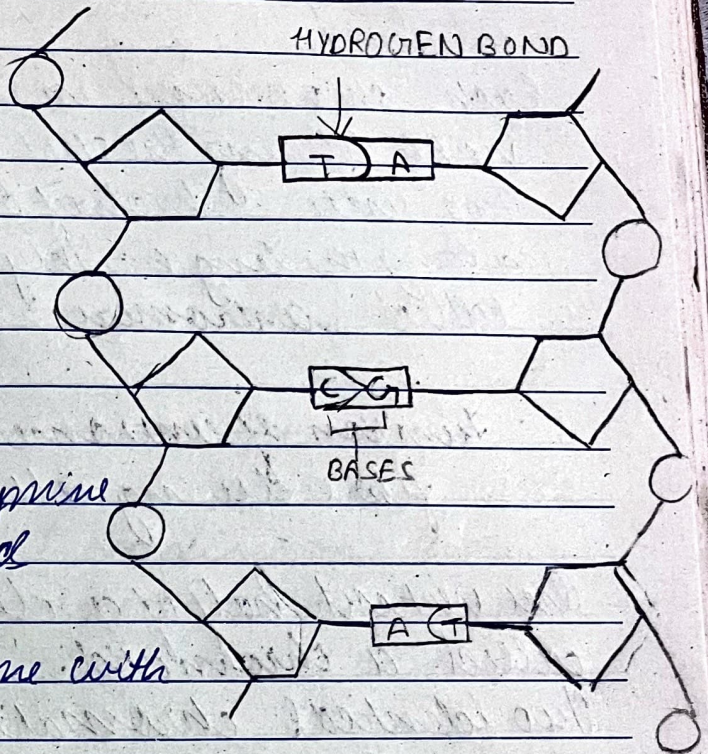 HYDROGEN BOND
T A
C G
BASES
A T
with